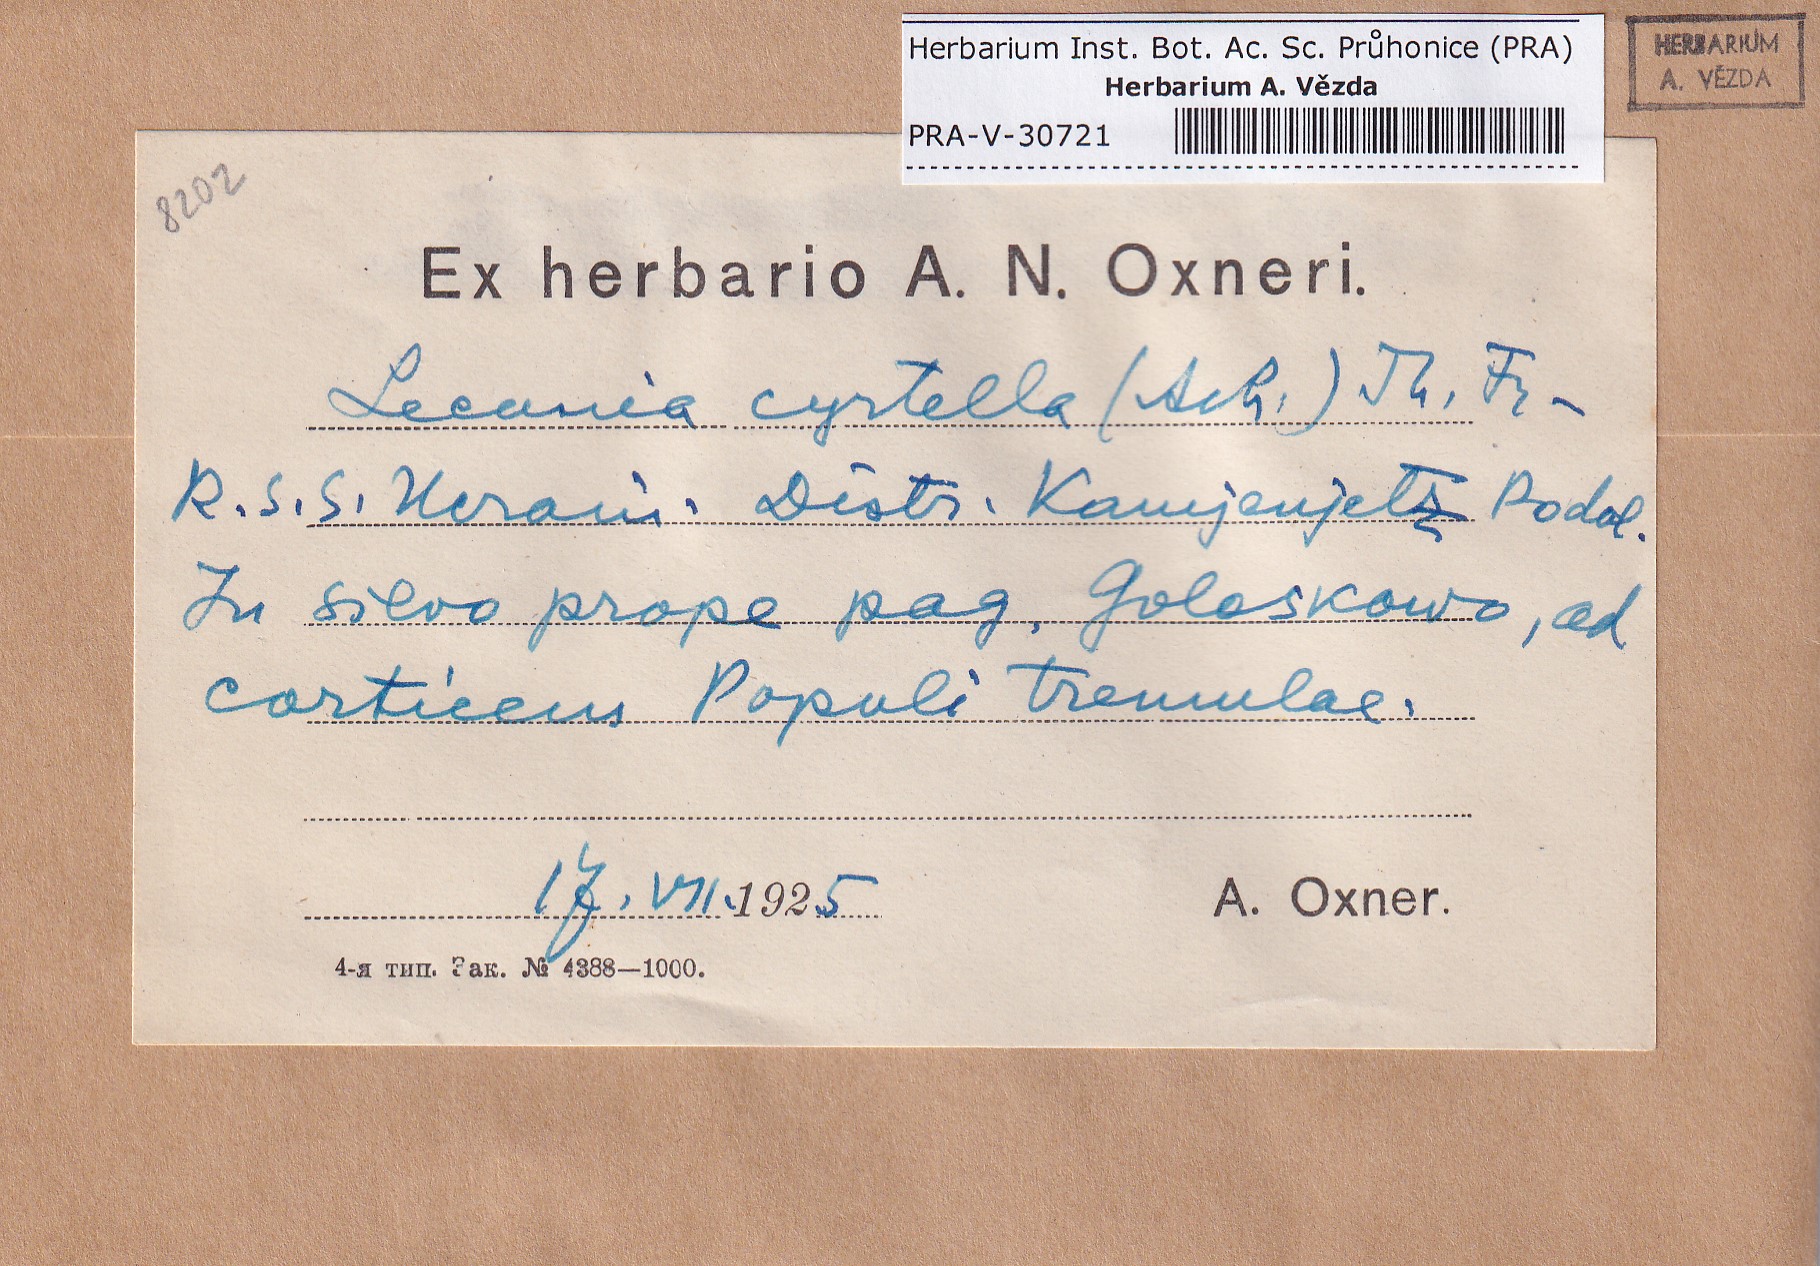 Herbarium Inst. Bot. Ac. Sc. Průhonice (PRA)
Herbarium A. Vězda
PRA-V-30721
HERBARIUM
A. VĚZDA
8202
Ex herbario A. N. Oxneri.
Lecania cyrtella (Ach.) Th. Fr-
R.S.S. Ucrain. Distr. Kamjenjetz Podol.
In silvo prope pag. Goloskowo, ad
corticem Populi tremulae.
17.VII.1925
A. Oxner.
4-я тип. Зак. № 4388—1000.